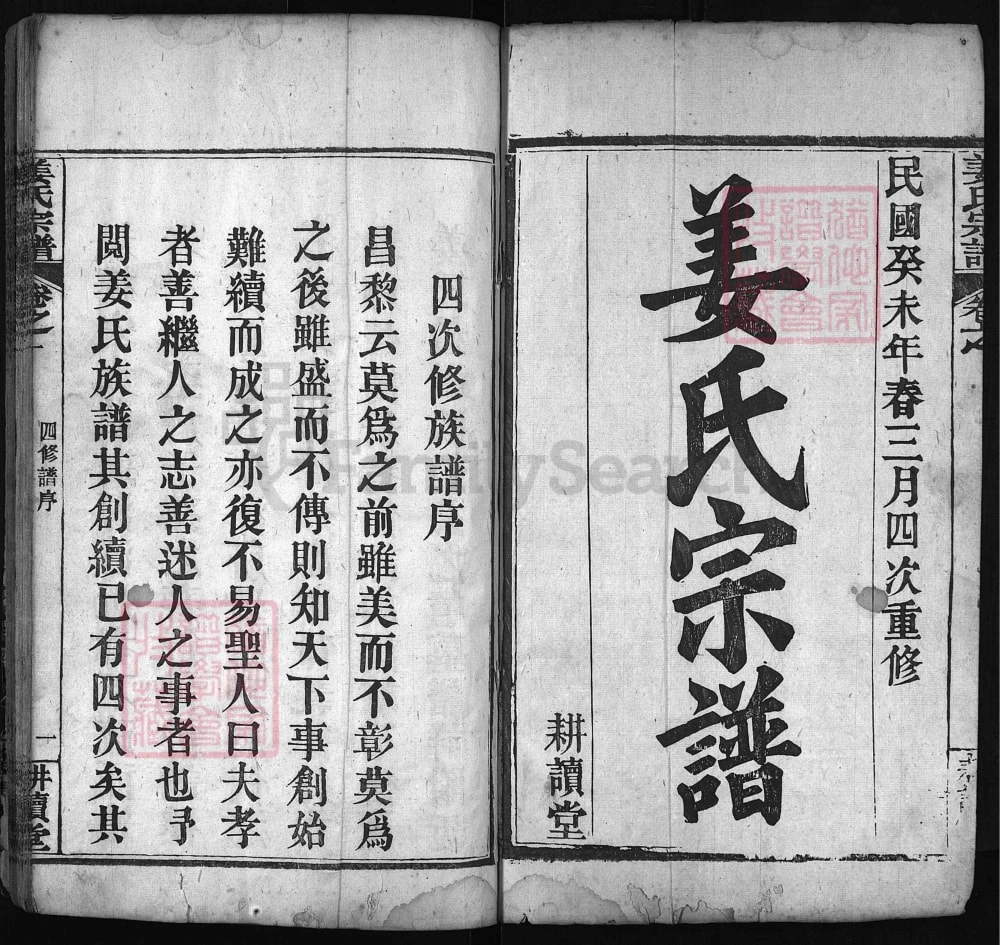 姜氏宗譜
卷之一
民國癸未年春三月四次重修
姜氏宗譜
耕讀堂
四次修族譜序
昌黎云莫爲之前雖美而不彰莫爲
之後雖盛而不傳則知天下事創始
難續而成之亦復不易聖人曰夫孝
者善繼人之志善述人之事者也予
閱姜氏族譜其創續已有四次矣其
姜氏宗譜
卷之一
四修譜序
一
耕讀堂
FamilySearch